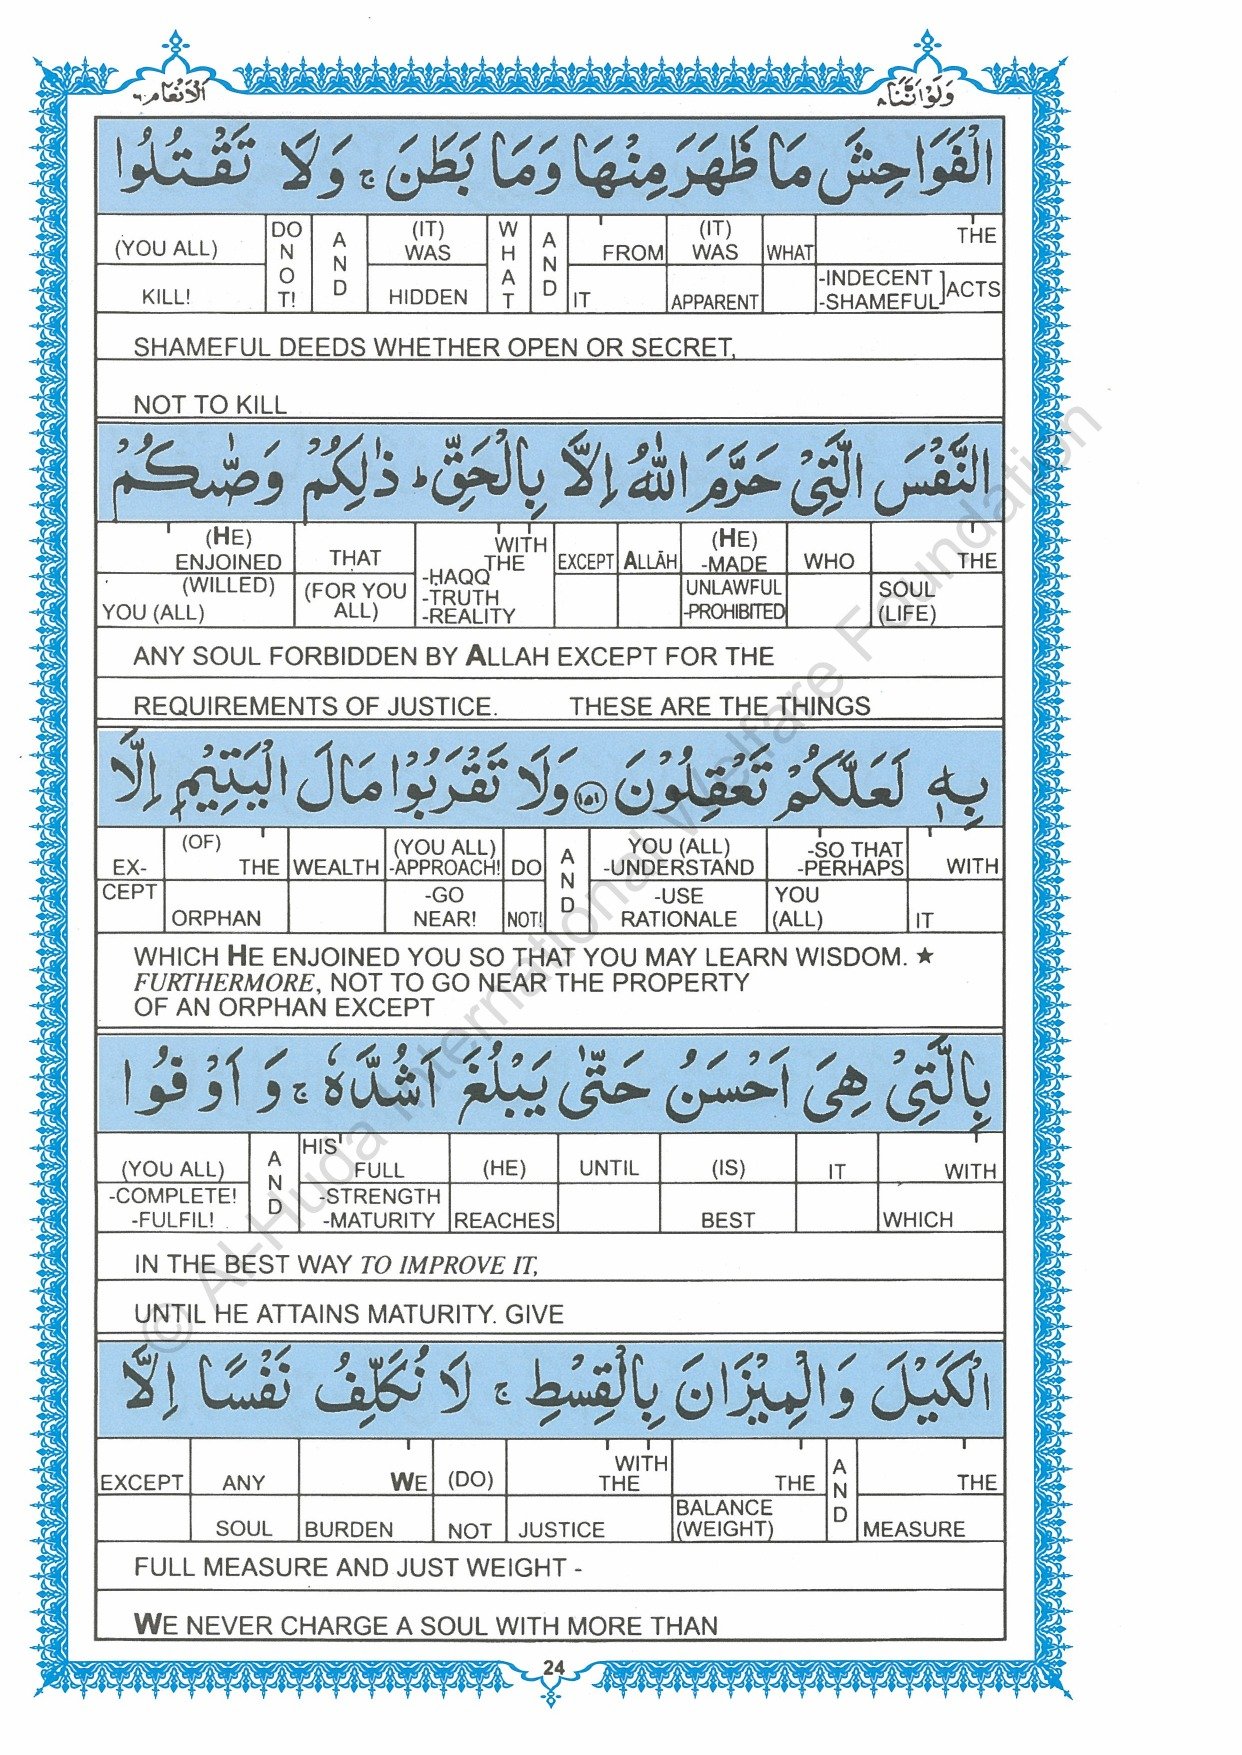 وَلَوْاَنَّنَا ٨
اَلْاَنْعَام ٦
الْفَوَاحِشَ مَا ظَهَرَ مِنْهَا وَمَا بَطَنَ ۚ وَلَا تَقْتُلُوا
(YOU ALL) DO NOT! AND (IT) WAS WHAT AND FROM (IT) WAS WHAT THE
KILL! HIDDEN IT APPARENT -INDECENT -SHAMEFUL] ACTS
SHAMEFUL DEEDS WHETHER OPEN OR SECRET,
NOT TO KILL
النَّفْسَ الَّتِيْ حَرَّمَ اللّٰهُ اِلَّا بِالْحَقِّ ؕ ذٰلِكُمْ وَصّٰىكُمْ
(HE) ENJOINED THAT WITH THE EXCEPT ALLĀH (HE) -MADE WHO THE
(WILLED) YOU (ALL) (FOR YOU ALL) -ḤAQQ -TRUTH -REALITY UNLAWFUL -PROHIBITED SOUL (LIFE)
ANY SOUL FORBIDDEN BY ALLAH EXCEPT FOR THE
REQUIREMENTS OF JUSTICE. THESE ARE THE THINGS
بِهٖ لَعَلَّكُمْ تَعْقِلُوْنَ ١٥١ وَلَا تَقْرَبُوْا مَالَ الْيَتِيْمِ اِلَّا
EX- (OF) THE WEALTH (YOU ALL) -APPROACH! DO AND YOU (ALL) -UNDERSTAND -SO THAT -PERHAPS WITH
CEPT ORPHAN -GO NEAR! NOT! -USE RATIONALE YOU (ALL) IT
WHICH HE ENJOINED YOU SO THAT YOU MAY LEARN WISDOM. ★
FURTHERMORE, NOT TO GO NEAR THE PROPERTY
OF AN ORPHAN EXCEPT
بِالَّتِيْ هِيَ اَحْسَنُ حَتّٰى يَبْلُغَ اَشُدَّهٗ ۚ وَ اَوْفُوا
(YOU ALL) AND HIS FULL (HE) UNTIL (IS) IT WITH
-COMPLETE! -FULFIL! -STRENGTH -MATURITY REACHES BEST WHICH
IN THE BEST WAY TO IMPROVE IT,
UNTIL HE ATTAINS MATURITY. GIVE
الْكَيْلَ وَالْمِيْزَانَ بِالْقِسْطِ ۚ لَا نُكَلِّفُ نَفْسًا اِلَّا
EXCEPT ANY WE (DO) WITH THE THE AND THE
SOUL BURDEN NOT JUSTICE BALANCE (WEIGHT) MEASURE
FULL MEASURE AND JUST WEIGHT -
WE NEVER CHARGE A SOUL WITH MORE THAN
24
© Al-Huda International Welfare Foundation